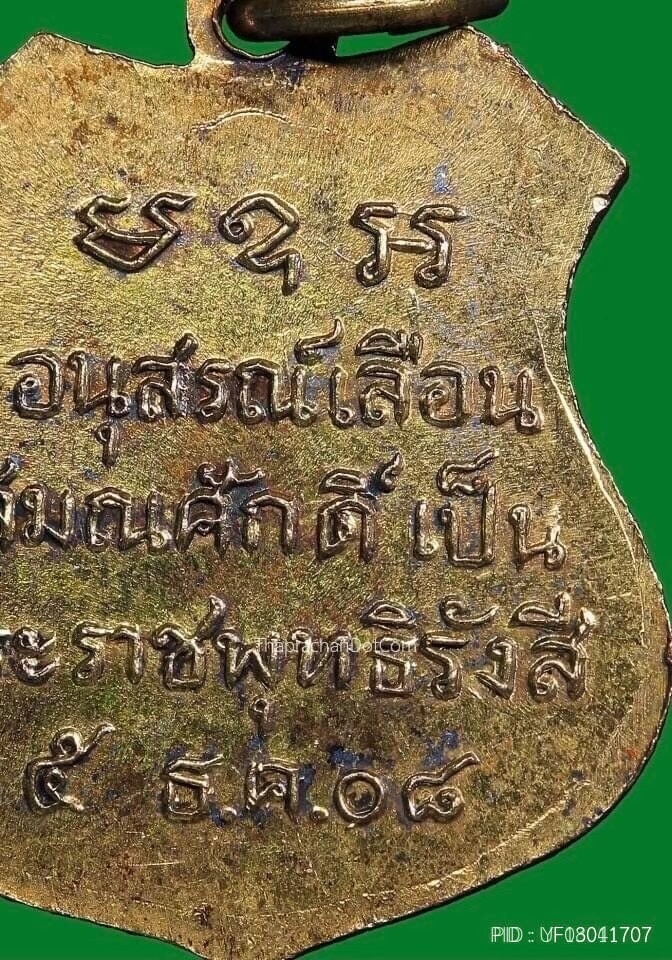 อนุสรณ์เลื่อน
สมณศักดิ์ เป็น
พระราชพุทธิรังสี
๕ ธ.ค.๐๘
ThaprachanDotCom